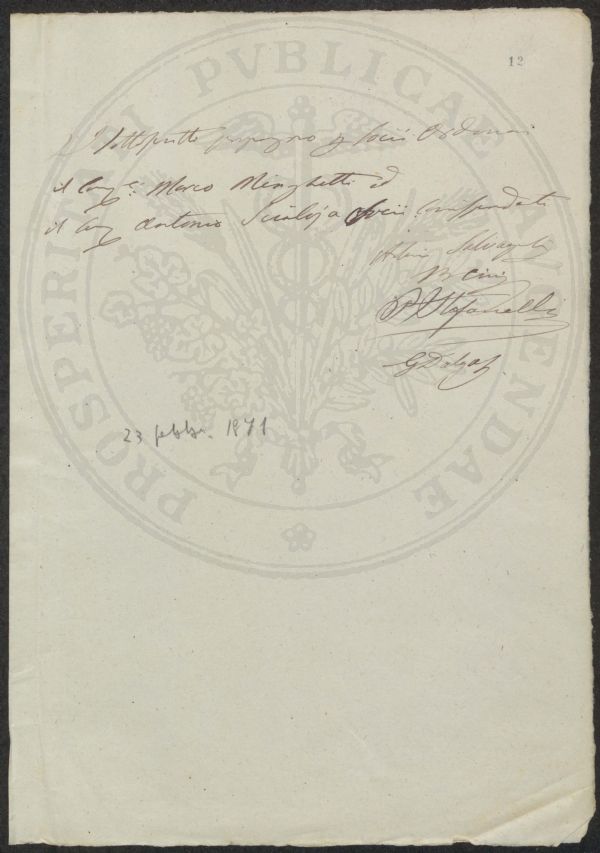 12
PROSPERITATI PVBLICAE AVGENDAE
I Sottoscritti propongono per Socii Ordinari
il Comm.e Marco Minghetti ed
il Com Antonio Scialoja Socii Corrispondenti
Salvagnoli
B Cini
P. Stefanelli
23 febbr. 1871